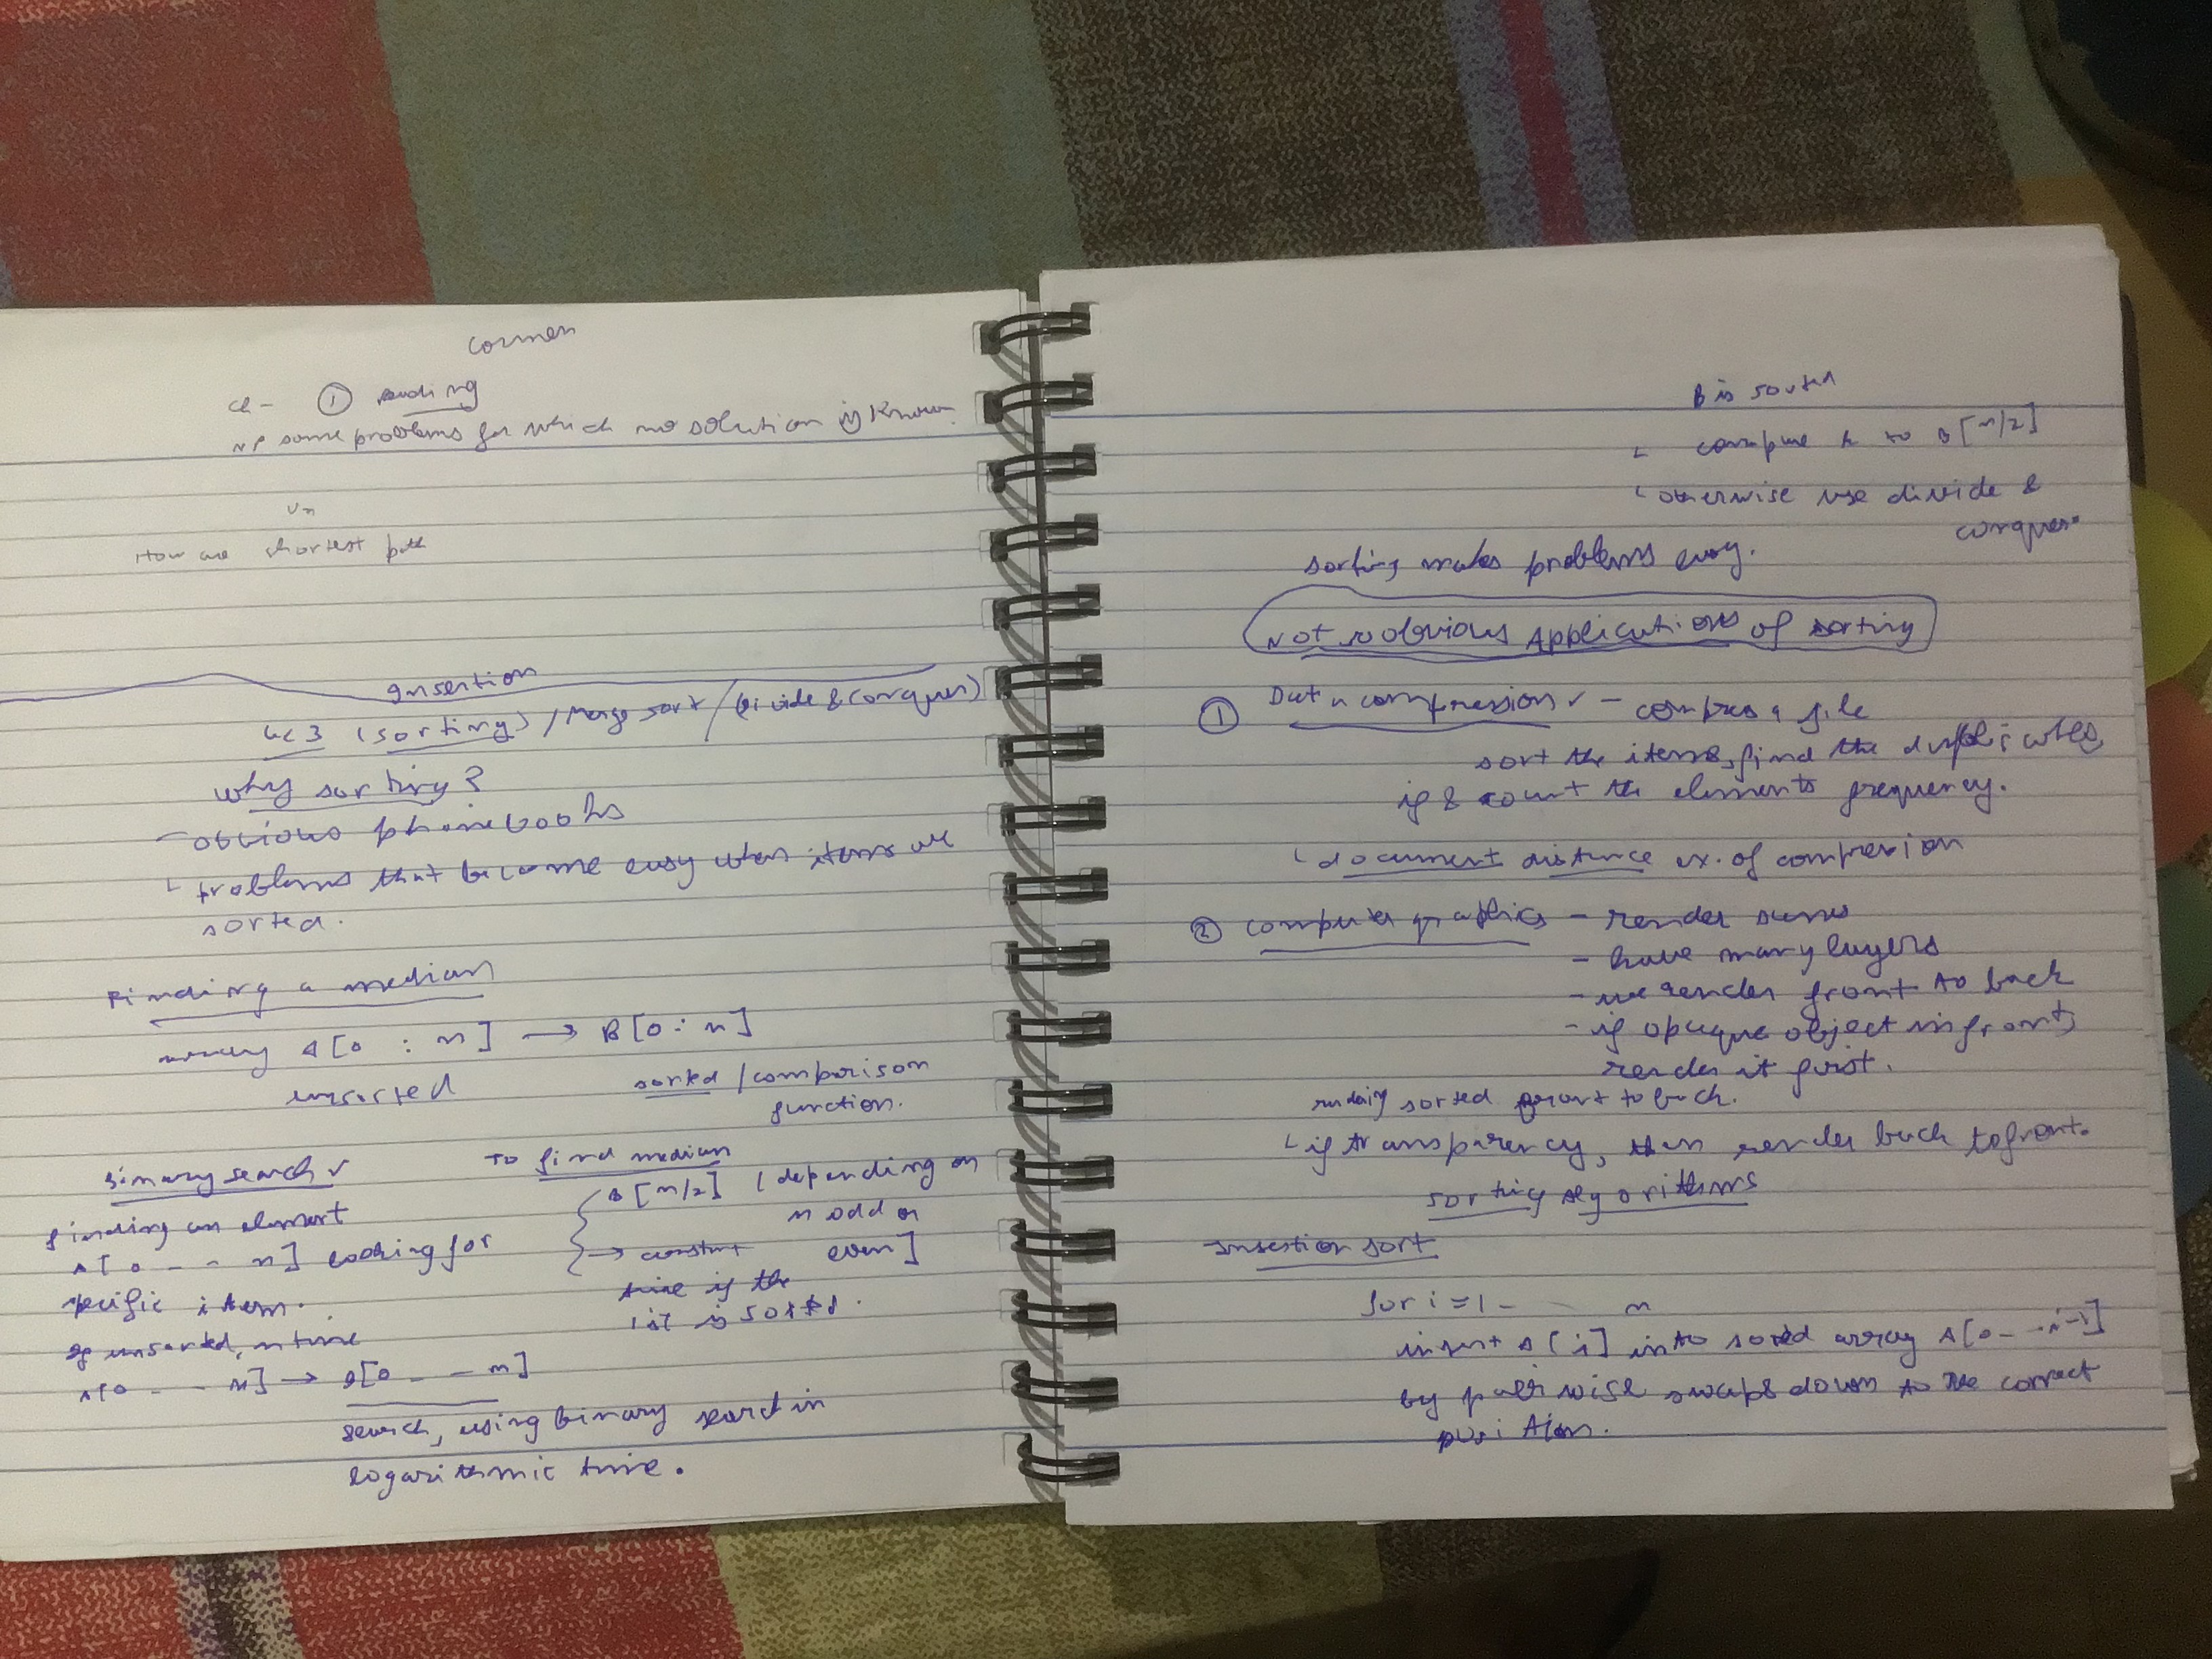 Cormen
① reading
NP some problems for which no solution is known.
How are shortest path
Insertion
Lec 3 (sorting) / Merge sort / (Divide & Conquer)
Why sorting?
- obvious phonebooks
problems that become easy when items are
sorted.
Finding a median
array A[0 : n] → B[0 : n]
unsorted
sorted / comparison
function.
Binary search ✓
finding an element
A[0 - - n] looking for
specific item.
If unsorted, n time
A[0 - - n] → B[0 - - n]
search, using binary search in
logarithmic time.
To find median
B[n/2] (depending on
n odd or
even]
→ constant
time if the
list is sorted.
B is sorted
compare k to B[n/2]
otherwise use divide &
conquer.
Sorting makes problems easy.
Not so obvious Applications of sorting
① Data compression ✓ - compress a file
sort the items, find the duplicates,
if & count the elements frequency.
document distance ex. of compression
② computer graphics - render scenes
- have many layers
- we render front to back
- if opaque object in front,
render it first.
sorted front to back.
if transparency, then render back to front.
sorting Algorithms
Insertion sort
for i = 1 - - n
insert A[i] into sorted array A[0 - - i-1]
by pairwise swaps down to the correct
position.